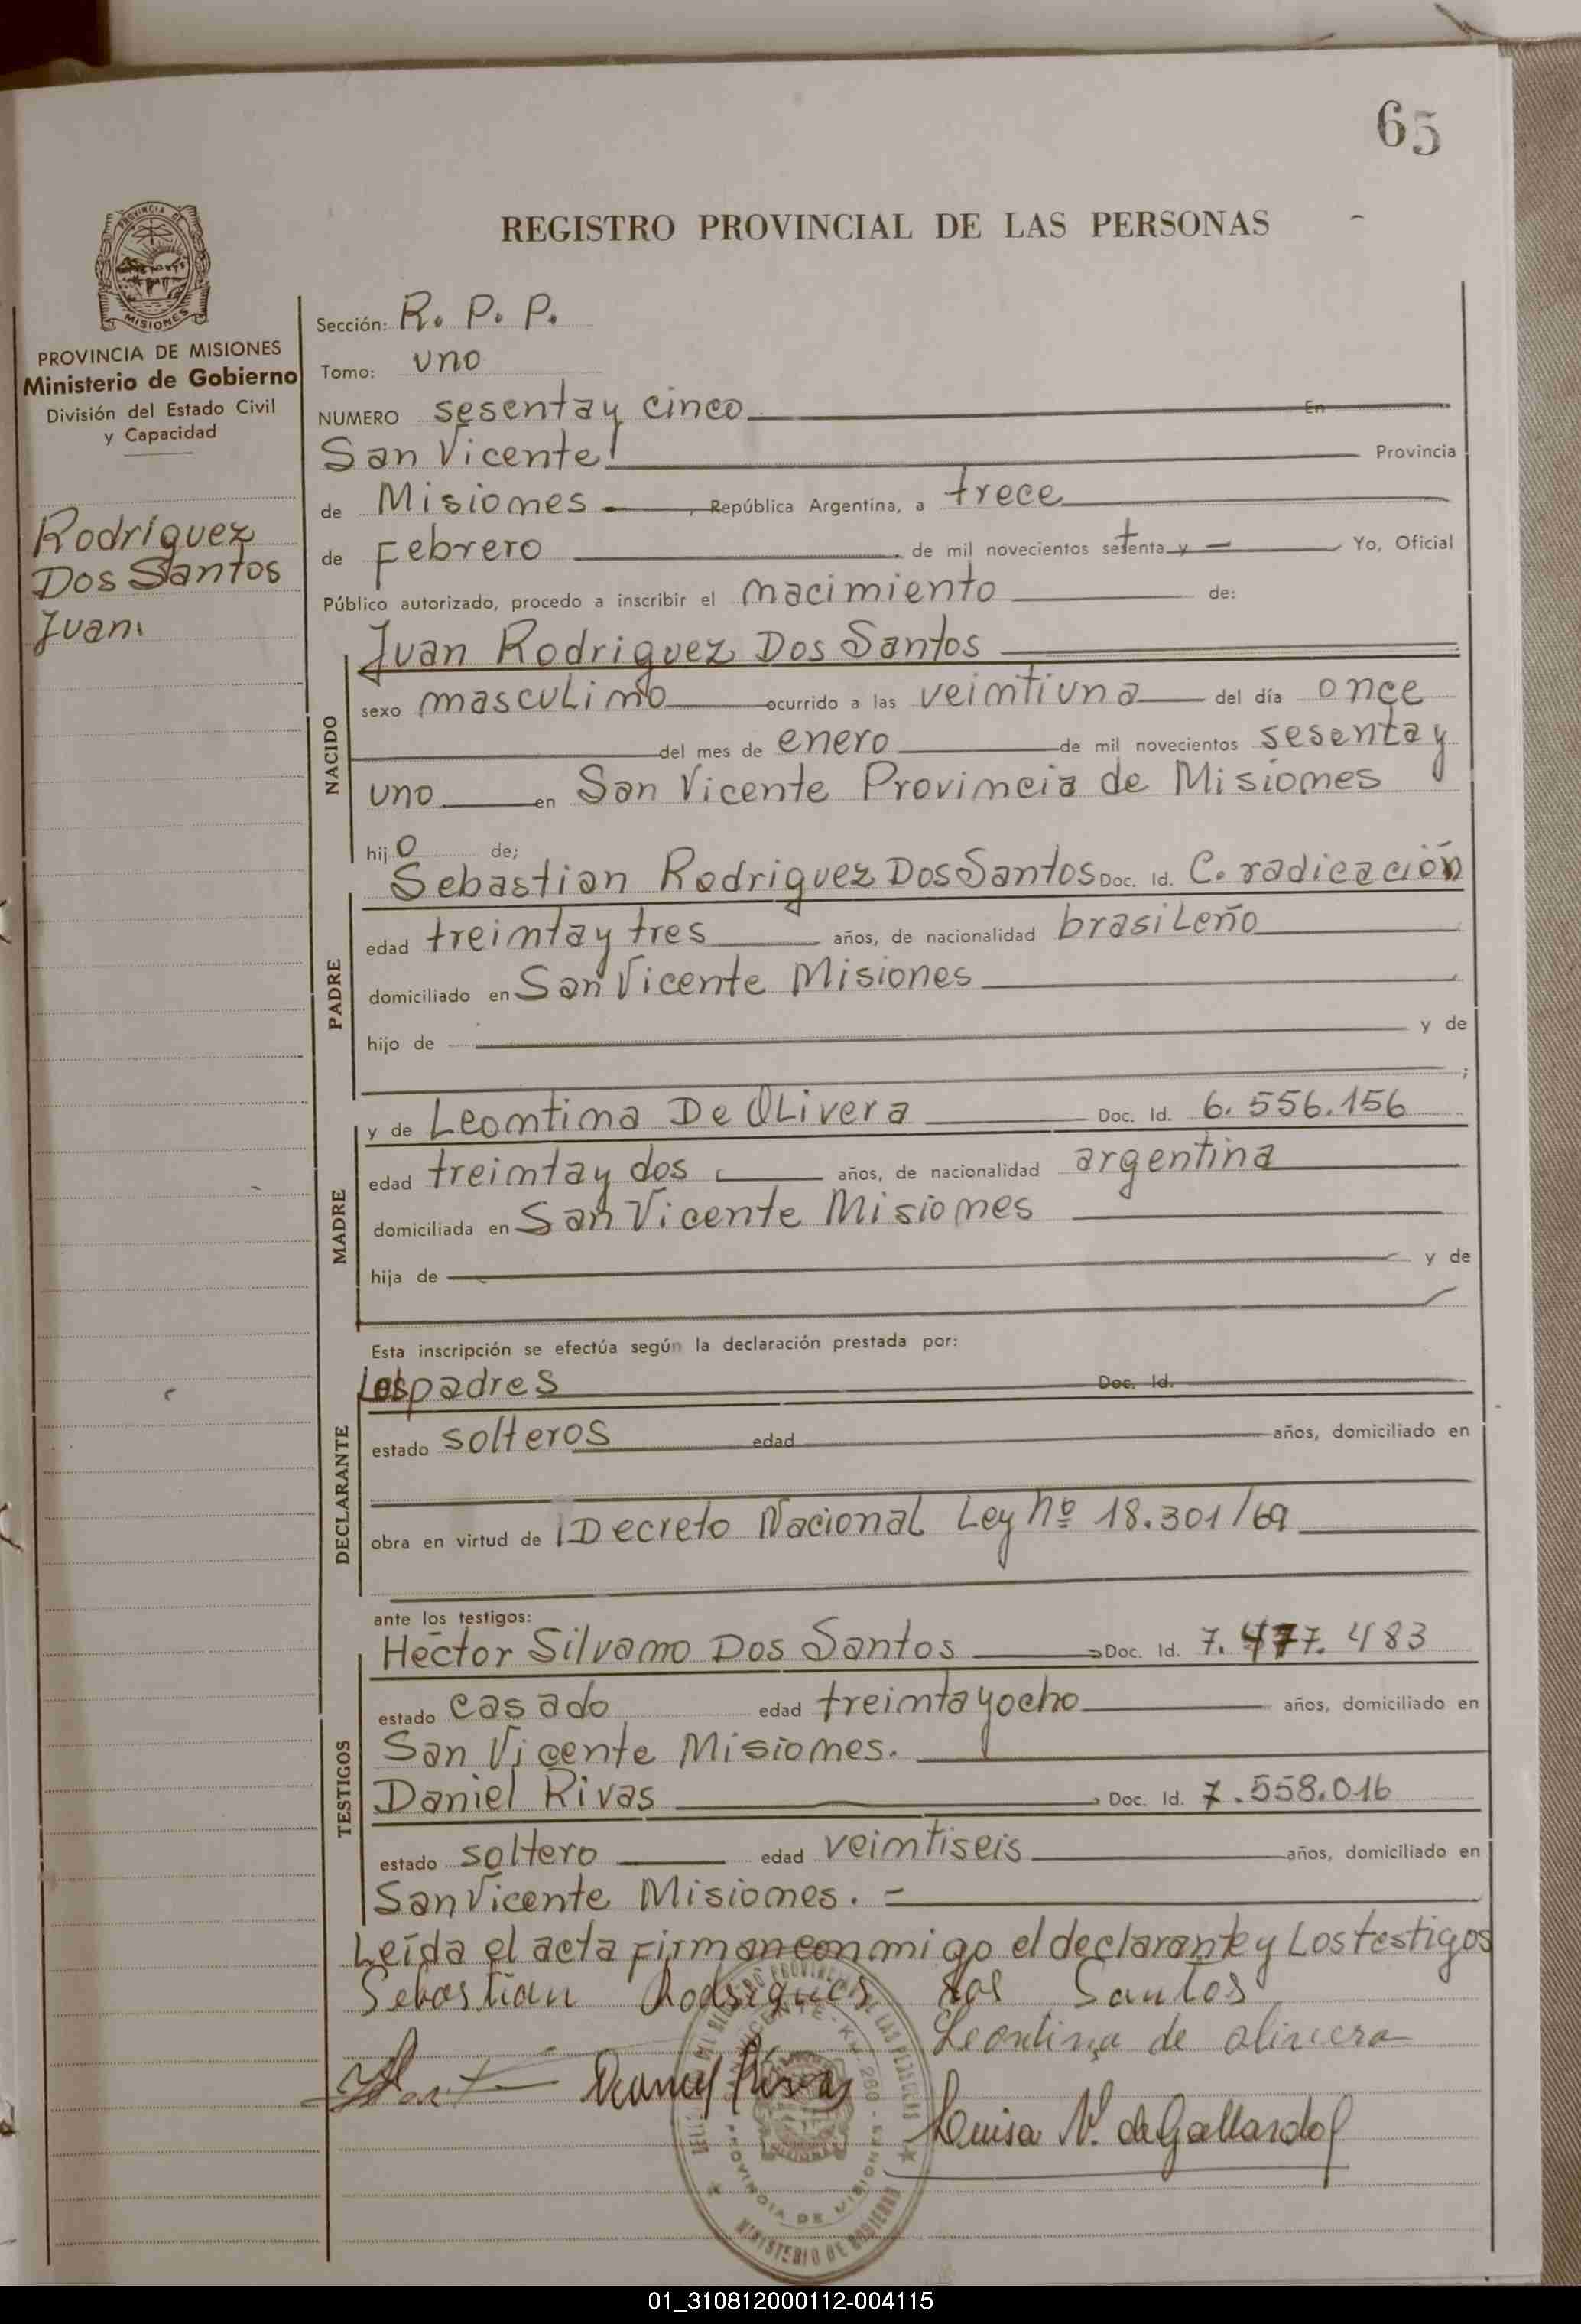 65
REGISTRO PROVINCIAL DE LAS PERSONAS
PROVINCIA DE MISIONES
PROVINCIA DE MISIONES
Ministerio de Gobierno
División del Estado Civil
y Capacidad
Rodríguez
Dos Santos
Juan
Sección: R. P. P.
Tomo: uno
NUMERO sesenta y cinco En
San Vicente Provincia
de Misiones, República Argentina, a trece
de Febrero de mil novecientos setenta y — Yo, Oficial
Público autorizado, procedo a inscribir el nacimiento de:
Juan Rodriguez Dos Santos
NACIDO
sexo masculino ocurrido a las veintiuna del día once
del mes de enero de mil novecientos sesenta y
uno en San Vicente Provincia de Misiones
hijo de;
PADRE
Sebastian Rodriguez Dos Santos Doc. Id. C. radicación
edad treinta y tres años, de nacionalidad brasileño
domiciliado en San Vicente Misiones
hijo de y de
;
MADRE
y de Leontina De Olivera Doc. Id. 6.556.156
edad treinta y dos años, de nacionalidad argentina
domiciliada en San Vicente Misiones
hija de y de
Esta inscripción se efectúa según la declaración prestada por:
DECLARANTE
Los padres Doc. Id.
estado solteros edad años, domiciliado en
obra en virtud de Decreto Nacional Ley nº 18.301/69
ante los testigos:
TESTIGOS
Hector Silvano Dos Santos Doc. Id. 7.477.483
estado casado edad treinta y ocho años, domiciliado en
San Vicente Misiones.
Daniel Rivas Doc. Id. 7.558.016
estado soltero edad veintiseis años, domiciliado en
San Vicente Misiones. =
Leída el acta firman conmigo el declarante y Los testigos
Sebastian Rodrigues dos Santos
Leontina de olivera
Daniel Rivas
Luisa N. de Gallardo
PROVINCIA DE MISIONES
MINISTERIO DE GOBIERNO
01_310812000112-004115